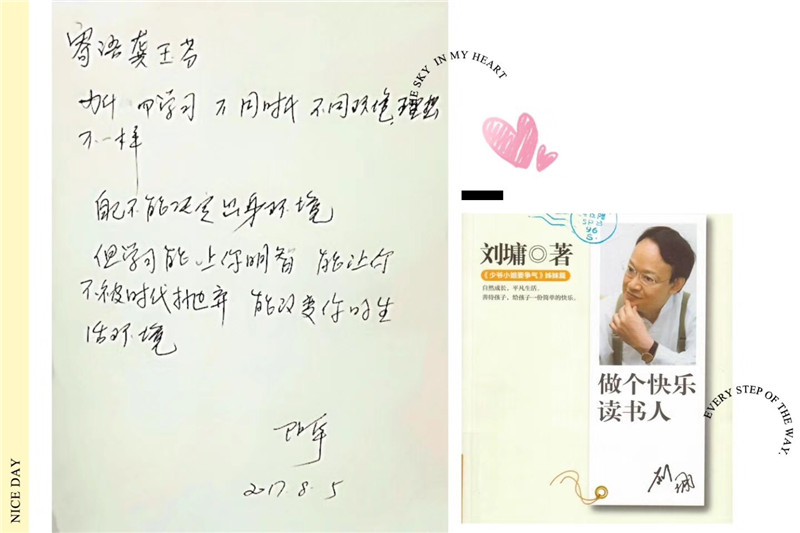 寄语龚玉芬
为什 四学习 不同时代 不同环境 理想
不一样
自己不能决定出身环境
但学习能上你明智 能让你
不被时代抛弃 能改变你的生
活环境
2017.8.5
THE SKY IN MY HEART
刘墉◎著
《少爷小姐要争气》姊妹篇
自然成长,平凡生活。
善待孩子,给孩子一份简单的快乐。
做个快乐
读书人
刘墉
EVERY STEP OF THE WAY.
NICE DAY